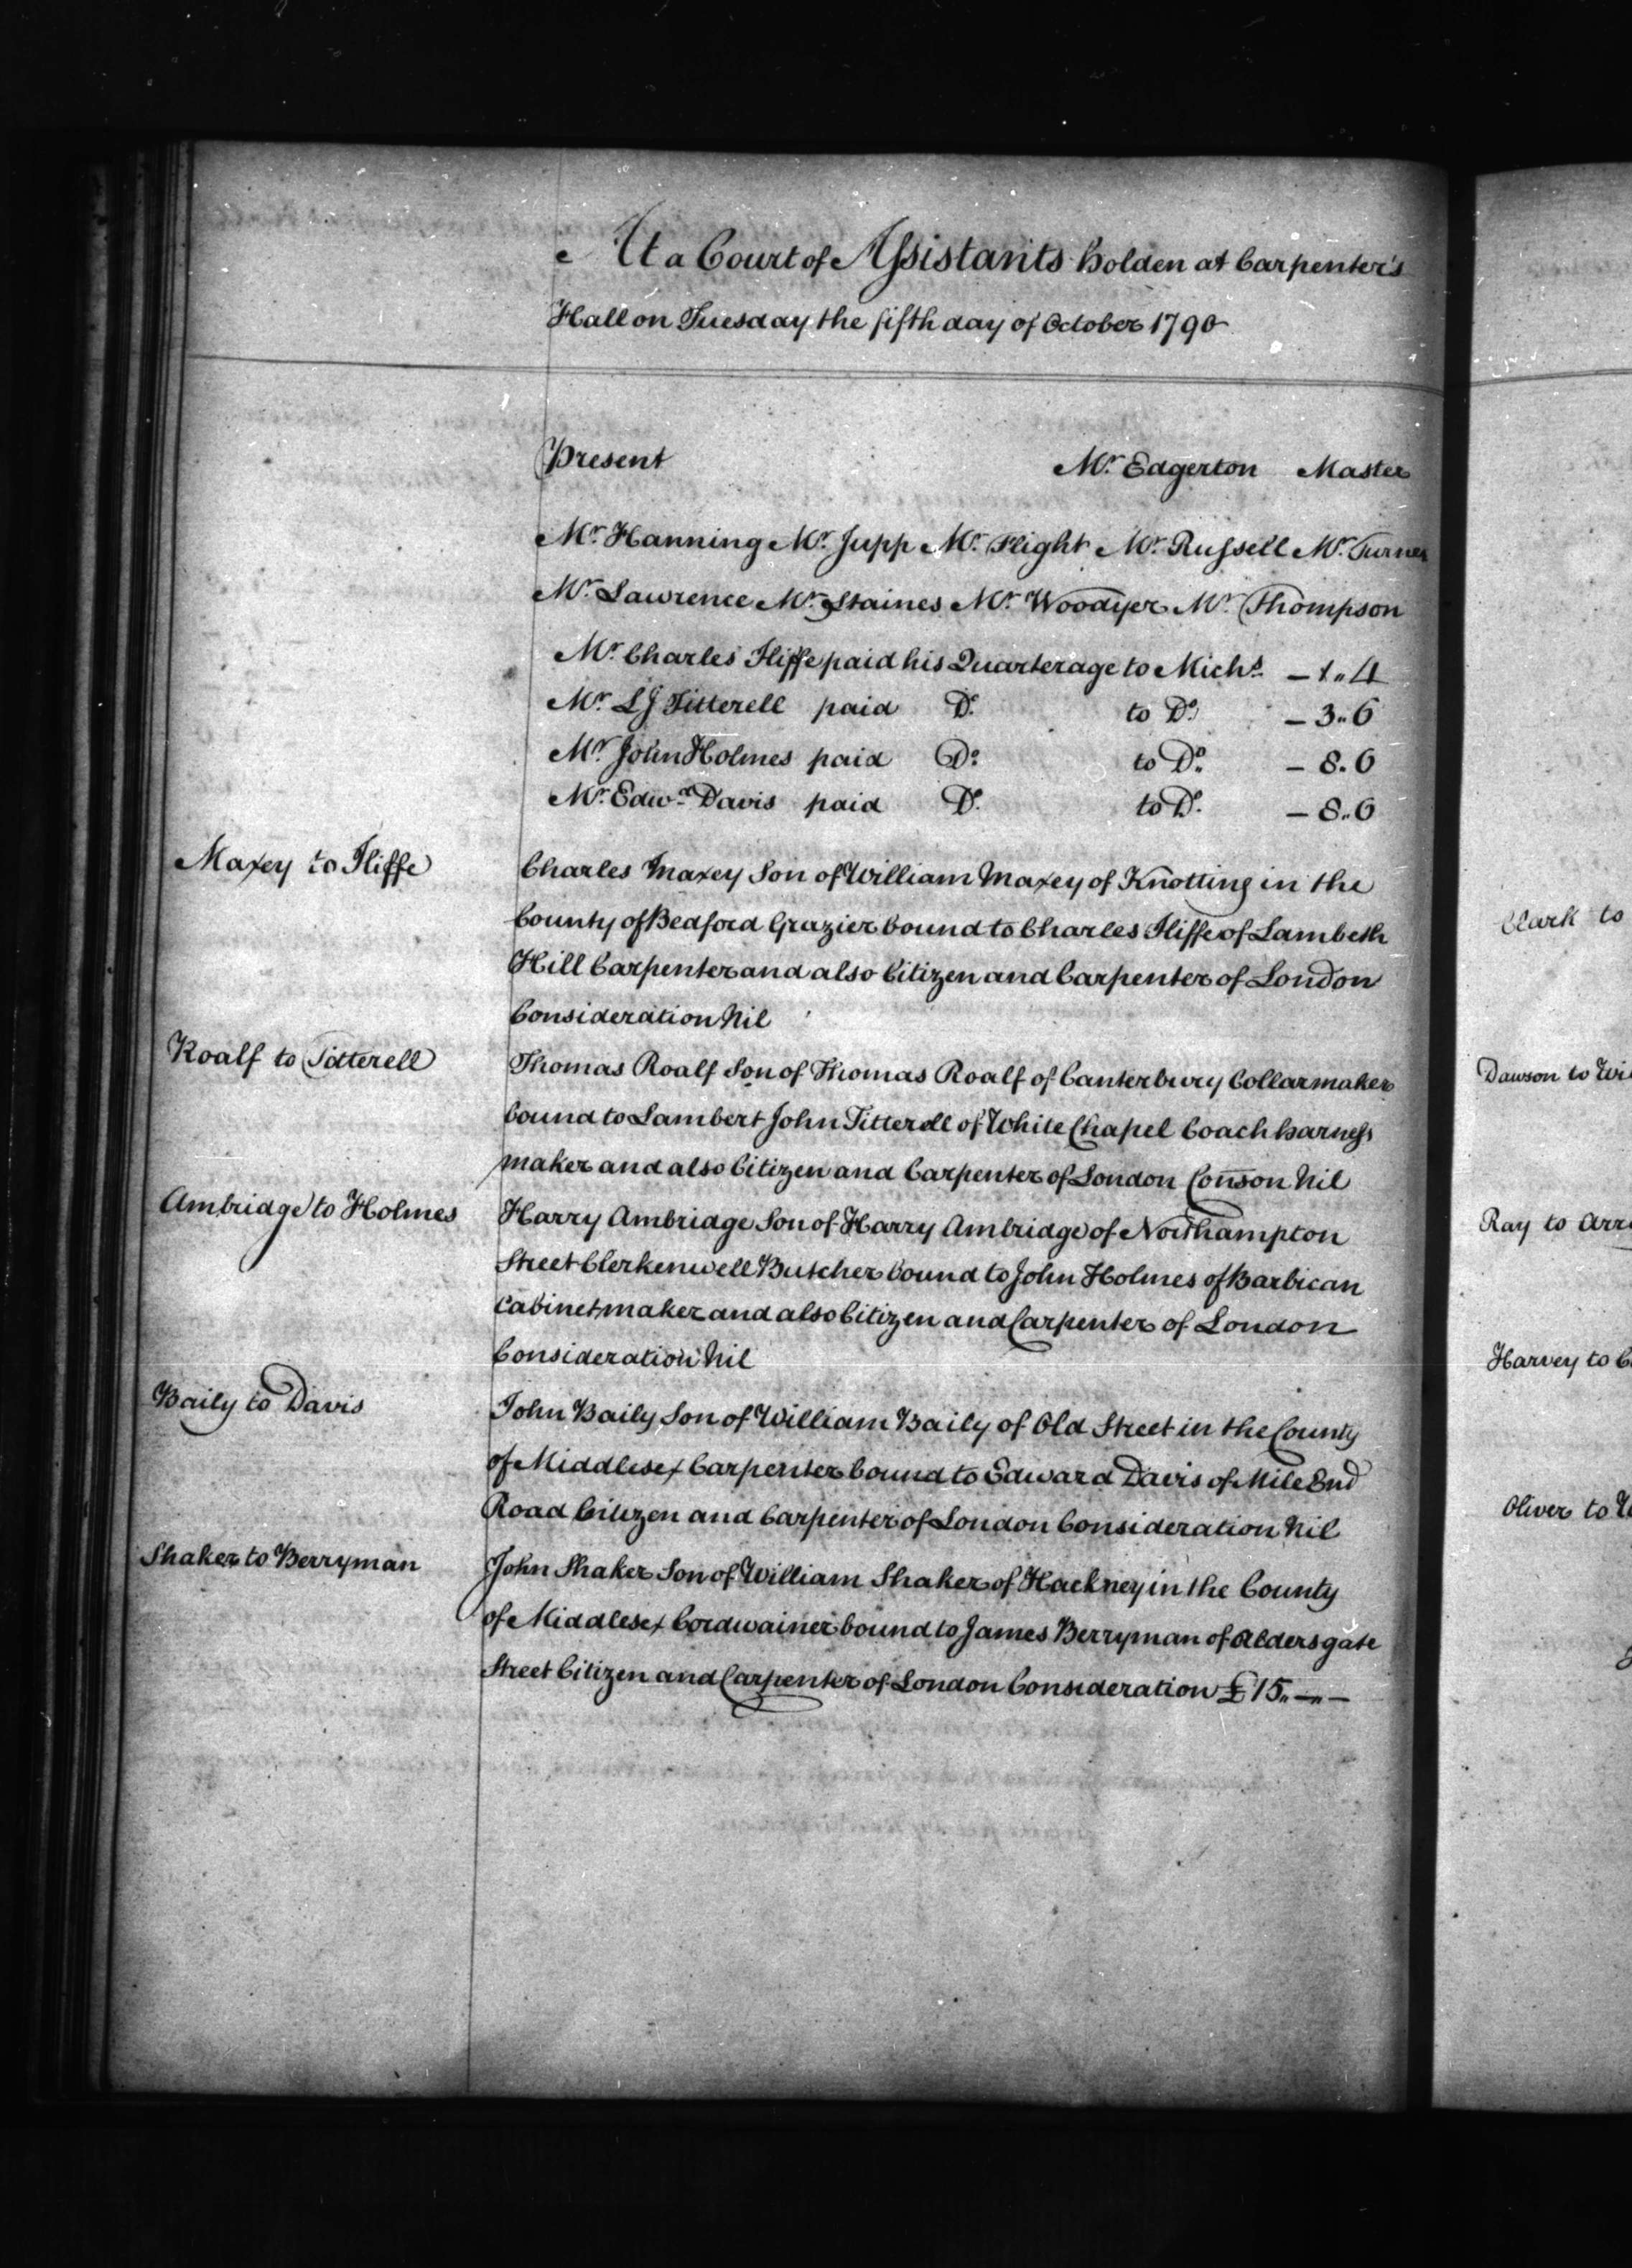 At a Court of Assistants holden at Carpenter's
Hall on Tuesday the fifth day of October 1790
Present Mr. Edgerton Master
Mr. Hanning Mr. Jupp Mr. Flight Mr. Russell Mr. Turner
Mr. Lawrence Mr. Staines Mr. Woodyer Mr. Thompson
Mr. Charles Iliffe paid his Quarterage to Michs. — 1 " 4
Mr. L J Titterell paid Do. to Do. — 3 " 6
Mr. John Holmes paid Do. to Do. — 8 . 6
Mr. Edwd. Davis paid Do. to Do. — 8 " 6
Maxey to Iliffe
Charles Maxey Son of William Maxey of Knotting in the
County of Bedford Grazier bound to Charles Iliffe of Lambeth
Hill Carpenter and also Citizen and Carpenter of London
Consideration Nil
Roalf to Titterell
Thomas Roalf Son of Thomas Roalf of Canterbury Collarmaker
bound to Lambert John Titterell of White Chapel Coach harness
maker and also Citizen and Carpenter of London Conson Nil
Ambridge to Holmes
Harry Ambridge Son of Harry Ambridge of Northampton
Street Clerkenwell Butcher bound to John Holmes of Barbican
Cabinetmaker and also Citizen and Carpenter of London
Consideration Nil
Baily to Davis
John Baily Son of William Baily of Old Street in the County
of Middlesex Carpenter bound to Edward Davis of Mile End
Road Citizen and Carpenter of London Consideration Nil
Shaker to Berryman
John Shaker Son of William Shaker of Hackney in the County
of Middlesex Cordwainer bound to James Berryman of Aldersgate
Street Citizen and Carpenter of London Consideration £15 " — " —
Clark to
Dawson to
Ray to
Harvey to
Oliver to